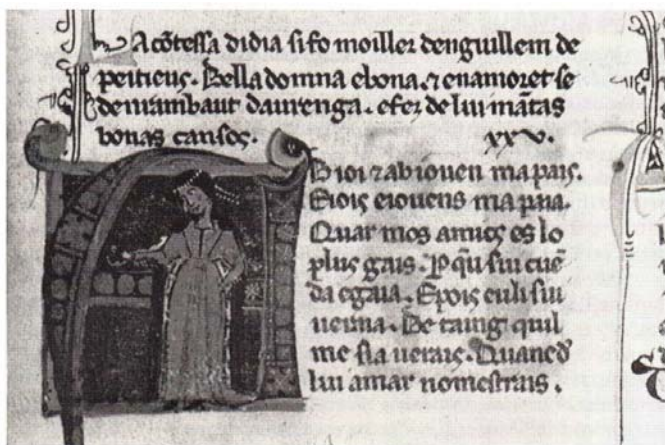 La cõtessa didia si fo moiller denguillem de
peitieus. Bella domna ebona. ⁊ enamoret se
denrambaut daurenga. efez de lui mãtas
bonas cansos. xxv.
Ab ioi ⁊ab iouen ma pais.
Eiois eiouens ma paia.
Quar mos amics es lo
plus gais. P qũ sui cuẽ
da egaia. Epois euli sui
ueraia. Be taing quil
me sia uerais. 
lui amar nomestrais.